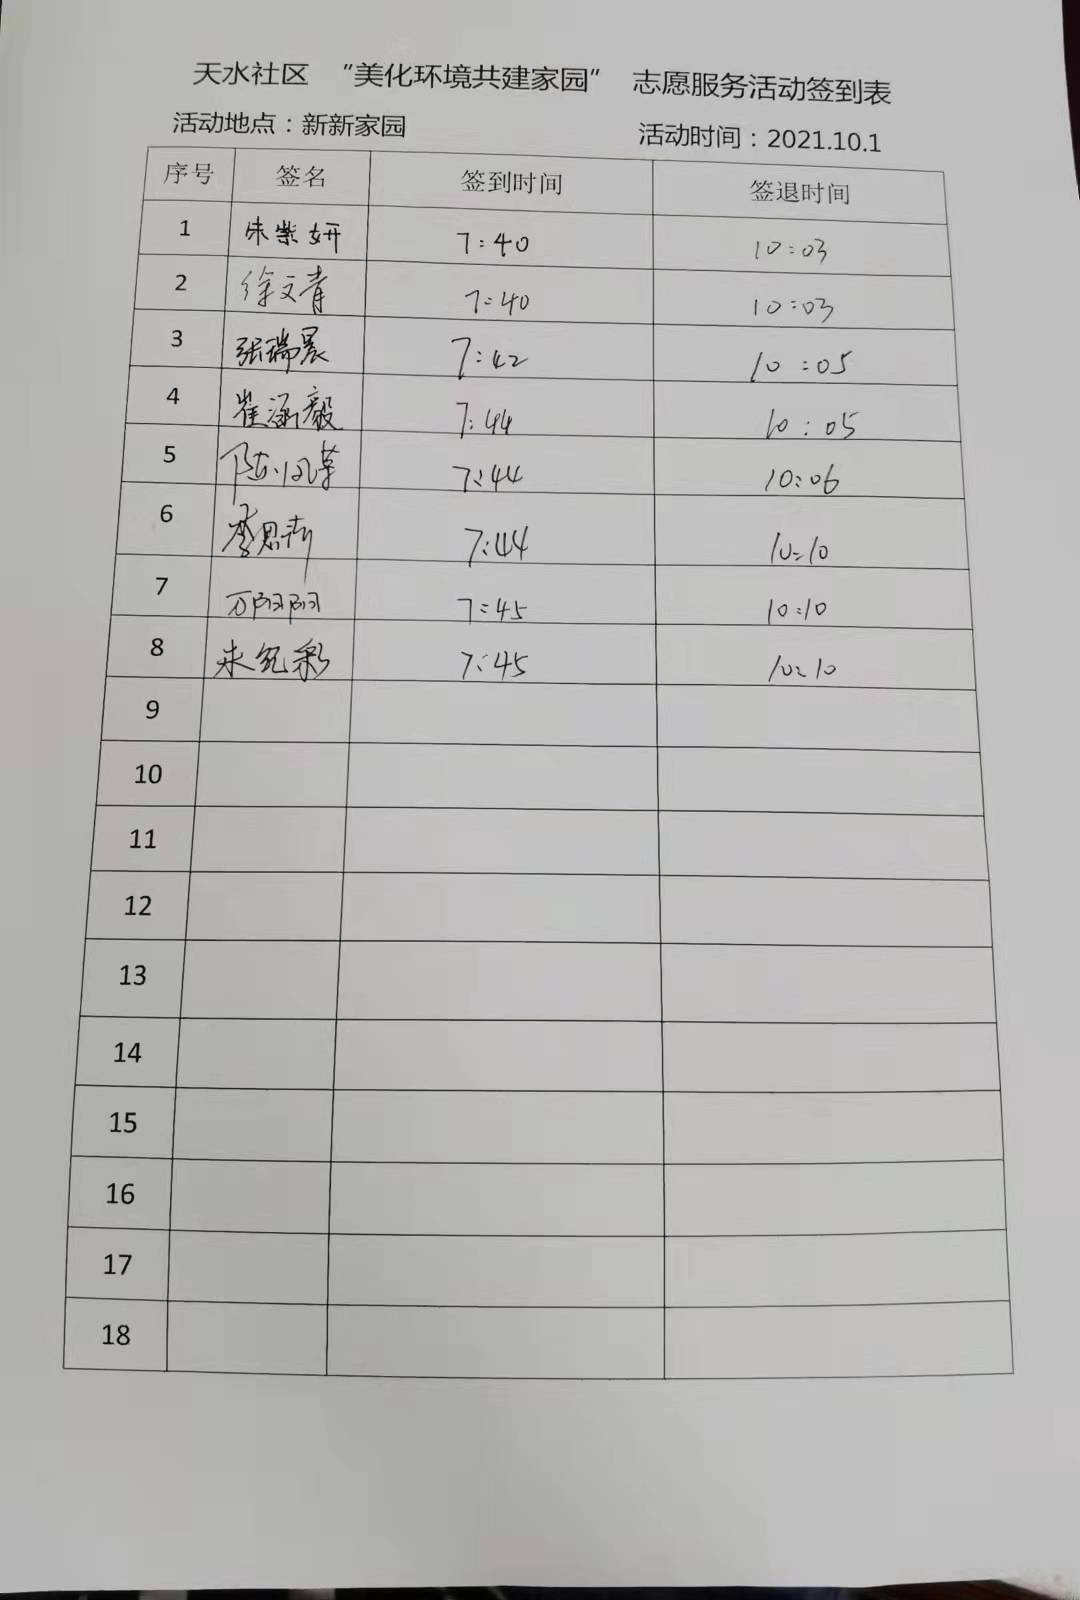 天水社区 “美化环境共建家园” 志愿服务活动签到表
活动地点：新新家园 活动时间：2021.10.1
序号 签名 签到时间 签退时间
1 朱紫妍 7:40 10:03
2 徐文青 7:40 10:03
3 张瑞晨 7:42 10:05
4 崔涵毅 7:44 10:05
5 陈 7:44 10:06
6 李思 7:44 10:10
7 万阳阳 7:45 10:10
8 7:45 10:10
9
10
11
12
13
14
15
16
17
18